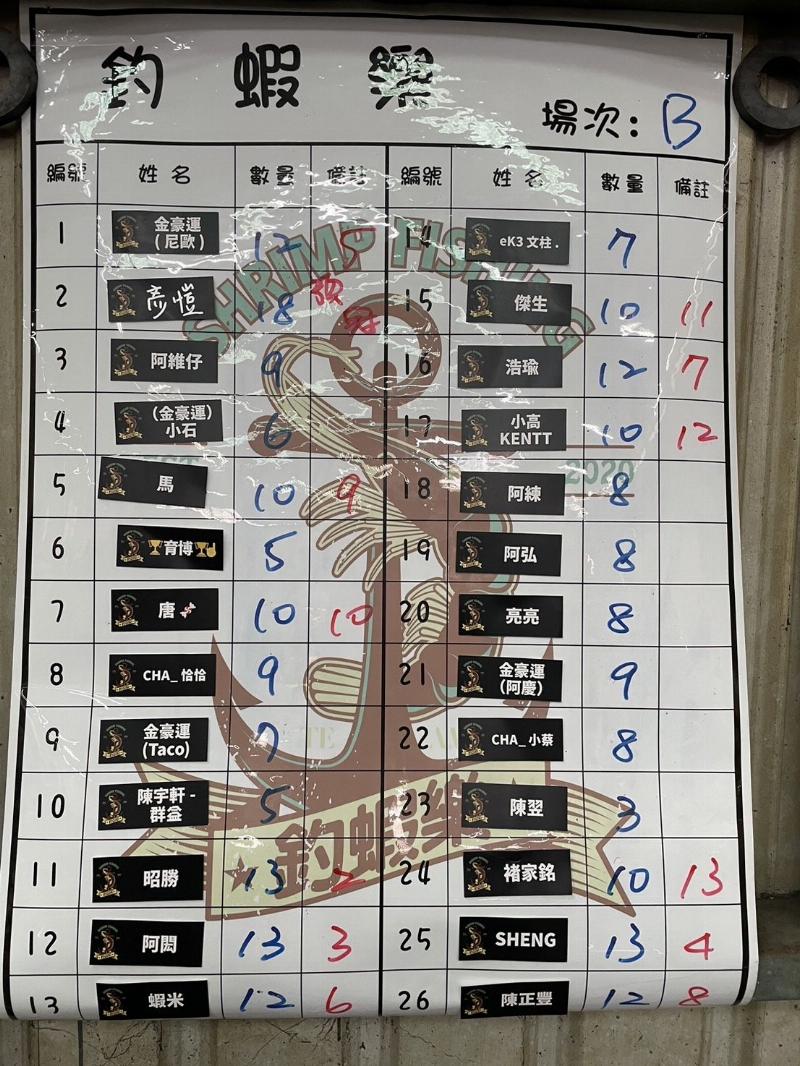 釣蝦樂
場次: B
編號 姓名 數量 備註 編號 姓名 數量 備註
1 金豪運(尼歐) 12 5 14 eK3 文柱. 7
2 彥愷 18 15 傑生 10 11
3 阿維仔 9 16 浩瑜 12 7
4 (金豪運)小石 6 17 小高 KENTT 10 12
5 馬 10 9 18 阿練 8
6 🏆育博🏆 5 19 阿弘 8
7 唐 10 10 20 亮亮 8
8 CHA_ 恰恰 9 21 金豪運(阿慶) 9
9 金豪運(Taco) 7 22 CHA_ 小蔡 8
10 陳宇軒-群益 5 23 陳翌 3
11 昭勝 13 2 24 褚家銘 10 13
12 阿閎 13 3 25 SHENG 13 4
13 蝦米 12 6 26 陳正豐 12 8
SHRIMP FISHING
2020
釣蝦樂